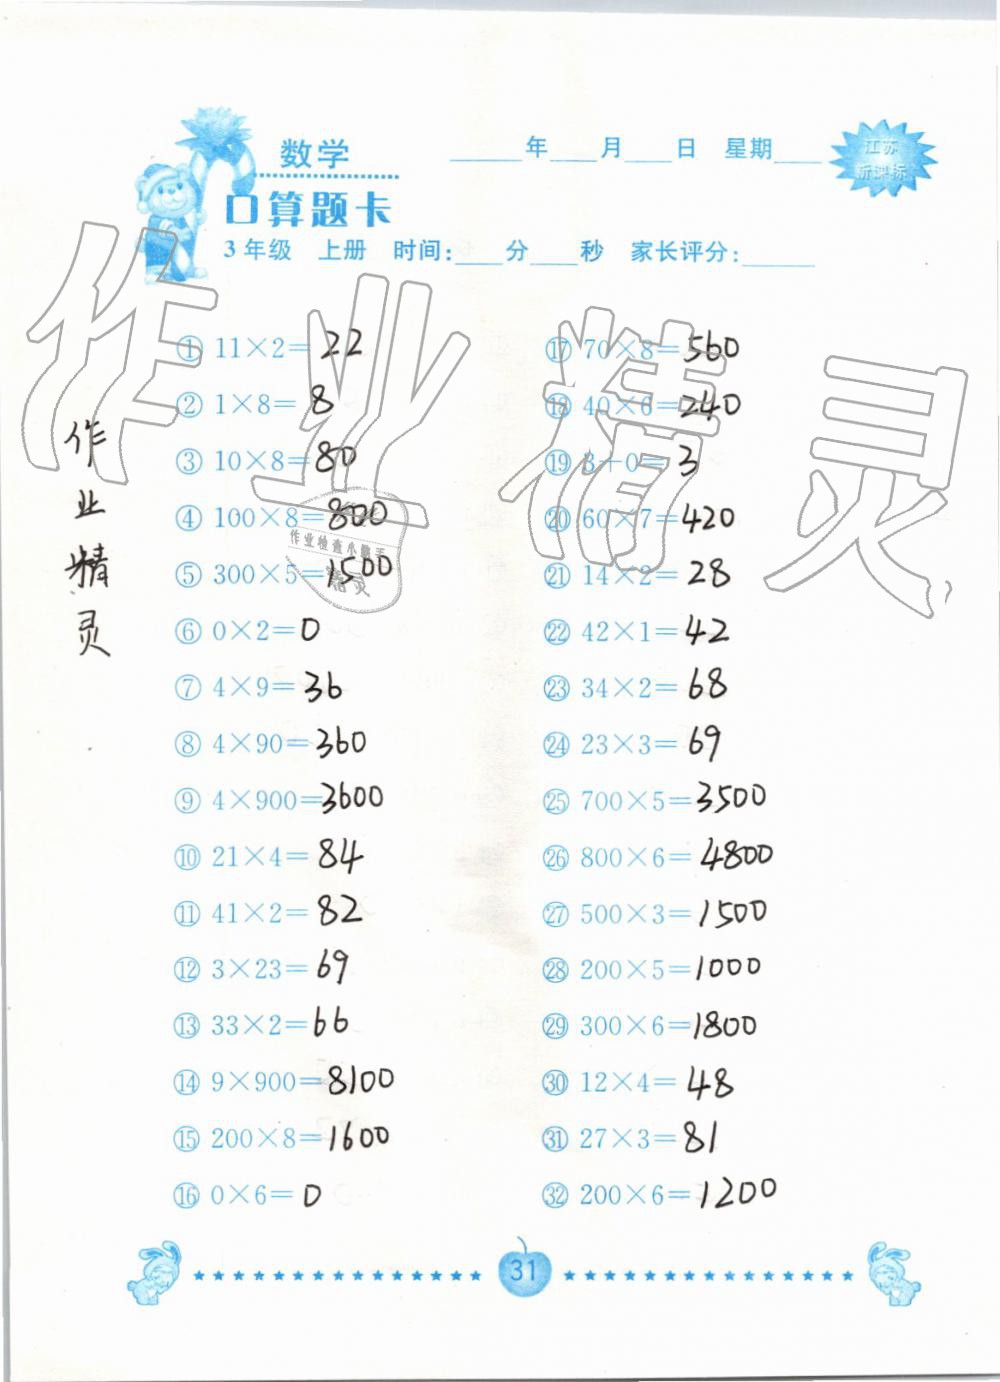 数学
____年____月____日 星期____
江苏
新课标
口算题卡
3年级 上册 时间:____分____秒 家长评分:____
① 11×2=22
② 1×8=8
③ 10×8=80
④ 100×8=800
⑤ 300×5=1500
⑥ 0×2=0
⑦ 4×9=36
⑧ 4×90=360
⑨ 4×900=3600
⑩ 21×4=84
⑪ 41×2=82
⑫ 3×23=69
⑬ 33×2=66
⑭ 9×900=8100
⑮ 200×8=1600
⑯ 0×6=0
⑰ 70×8=560
⑱ 40×6=240
⑲ 3+0=3
⑳ 60×7=420
㉑ 14×2=28
㉒ 42×1=42
㉓ 34×2=68
㉔ 23×3=69
㉕ 700×5=3500
㉖ 800×6=4800
㉗ 500×3=1500
㉘ 200×5=1000
㉙ 300×6=1800
㉚ 12×4=48
㉛ 27×3=81
㉜ 200×6=1200
作业精灵
作业精灵
作业检查小帮手
精灵
31